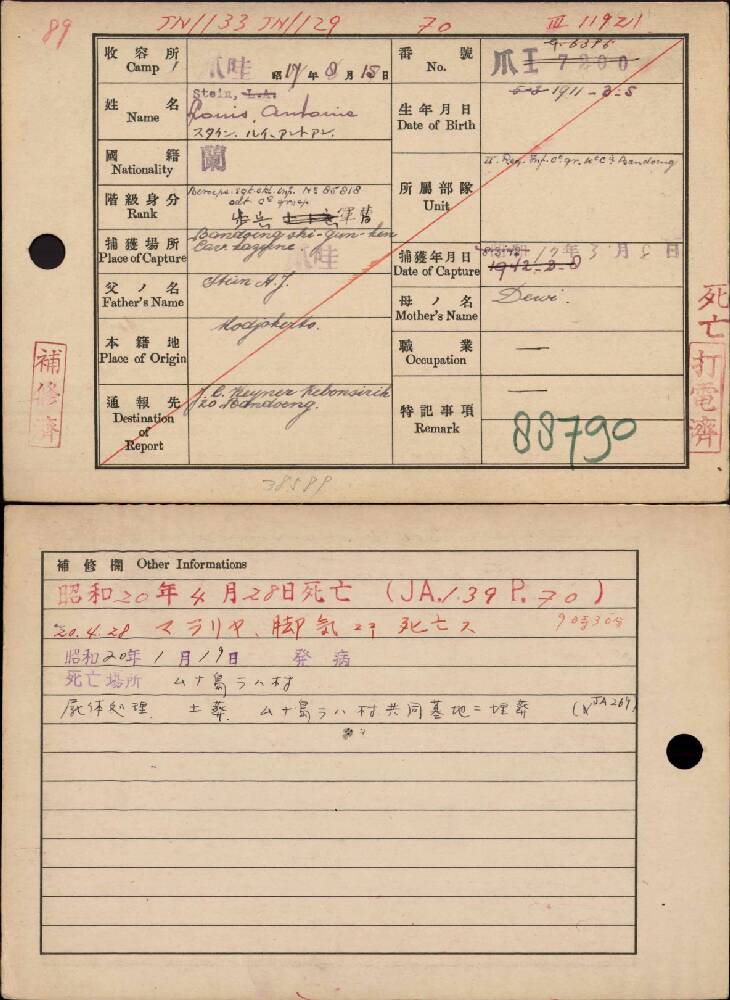 89
JN1133 JN1129
70
III 11921
收容所
Camp
爪陸 昭17年8月15日
番號
No.
爪 I 7200
姓名
Name
Stein, L.A.
Louis, Antoine
スタイン. ルイ. アントアン.
生年月日
Date of Birth
1911-3-5
國籍
Nationality
蘭
所屬部隊
Unit
階級身分
Rank
No 85818
軍曹
捕獲場所
Place of Capture
Bandoeng shi-gun-ken
爪陸
捕獲年月日
Date of Capture
17年3月8日
1942-3-8
父ノ名
Father's Name
Stein A.J.
母ノ名
Mother's Name
Dewi.
本籍地
Place of Origin
Modjokerto.
職業
Occupation
—
通報先
Destination of Report
Bandoeng.
特記事項
Remark
—
88790
補修濟
死亡
打電濟
38589
補修欄 Other Informations
昭和20年4月28日死亡 (JA.139 P.70)
20.4.28 マラリヤ、脚気ニテ死亡ス
昭和20年1月19日 発病
死亡場所 ムナ島ラハ村
屍体処理. 土葬 ムナ島ラハ村共同墓地ニ埋葬